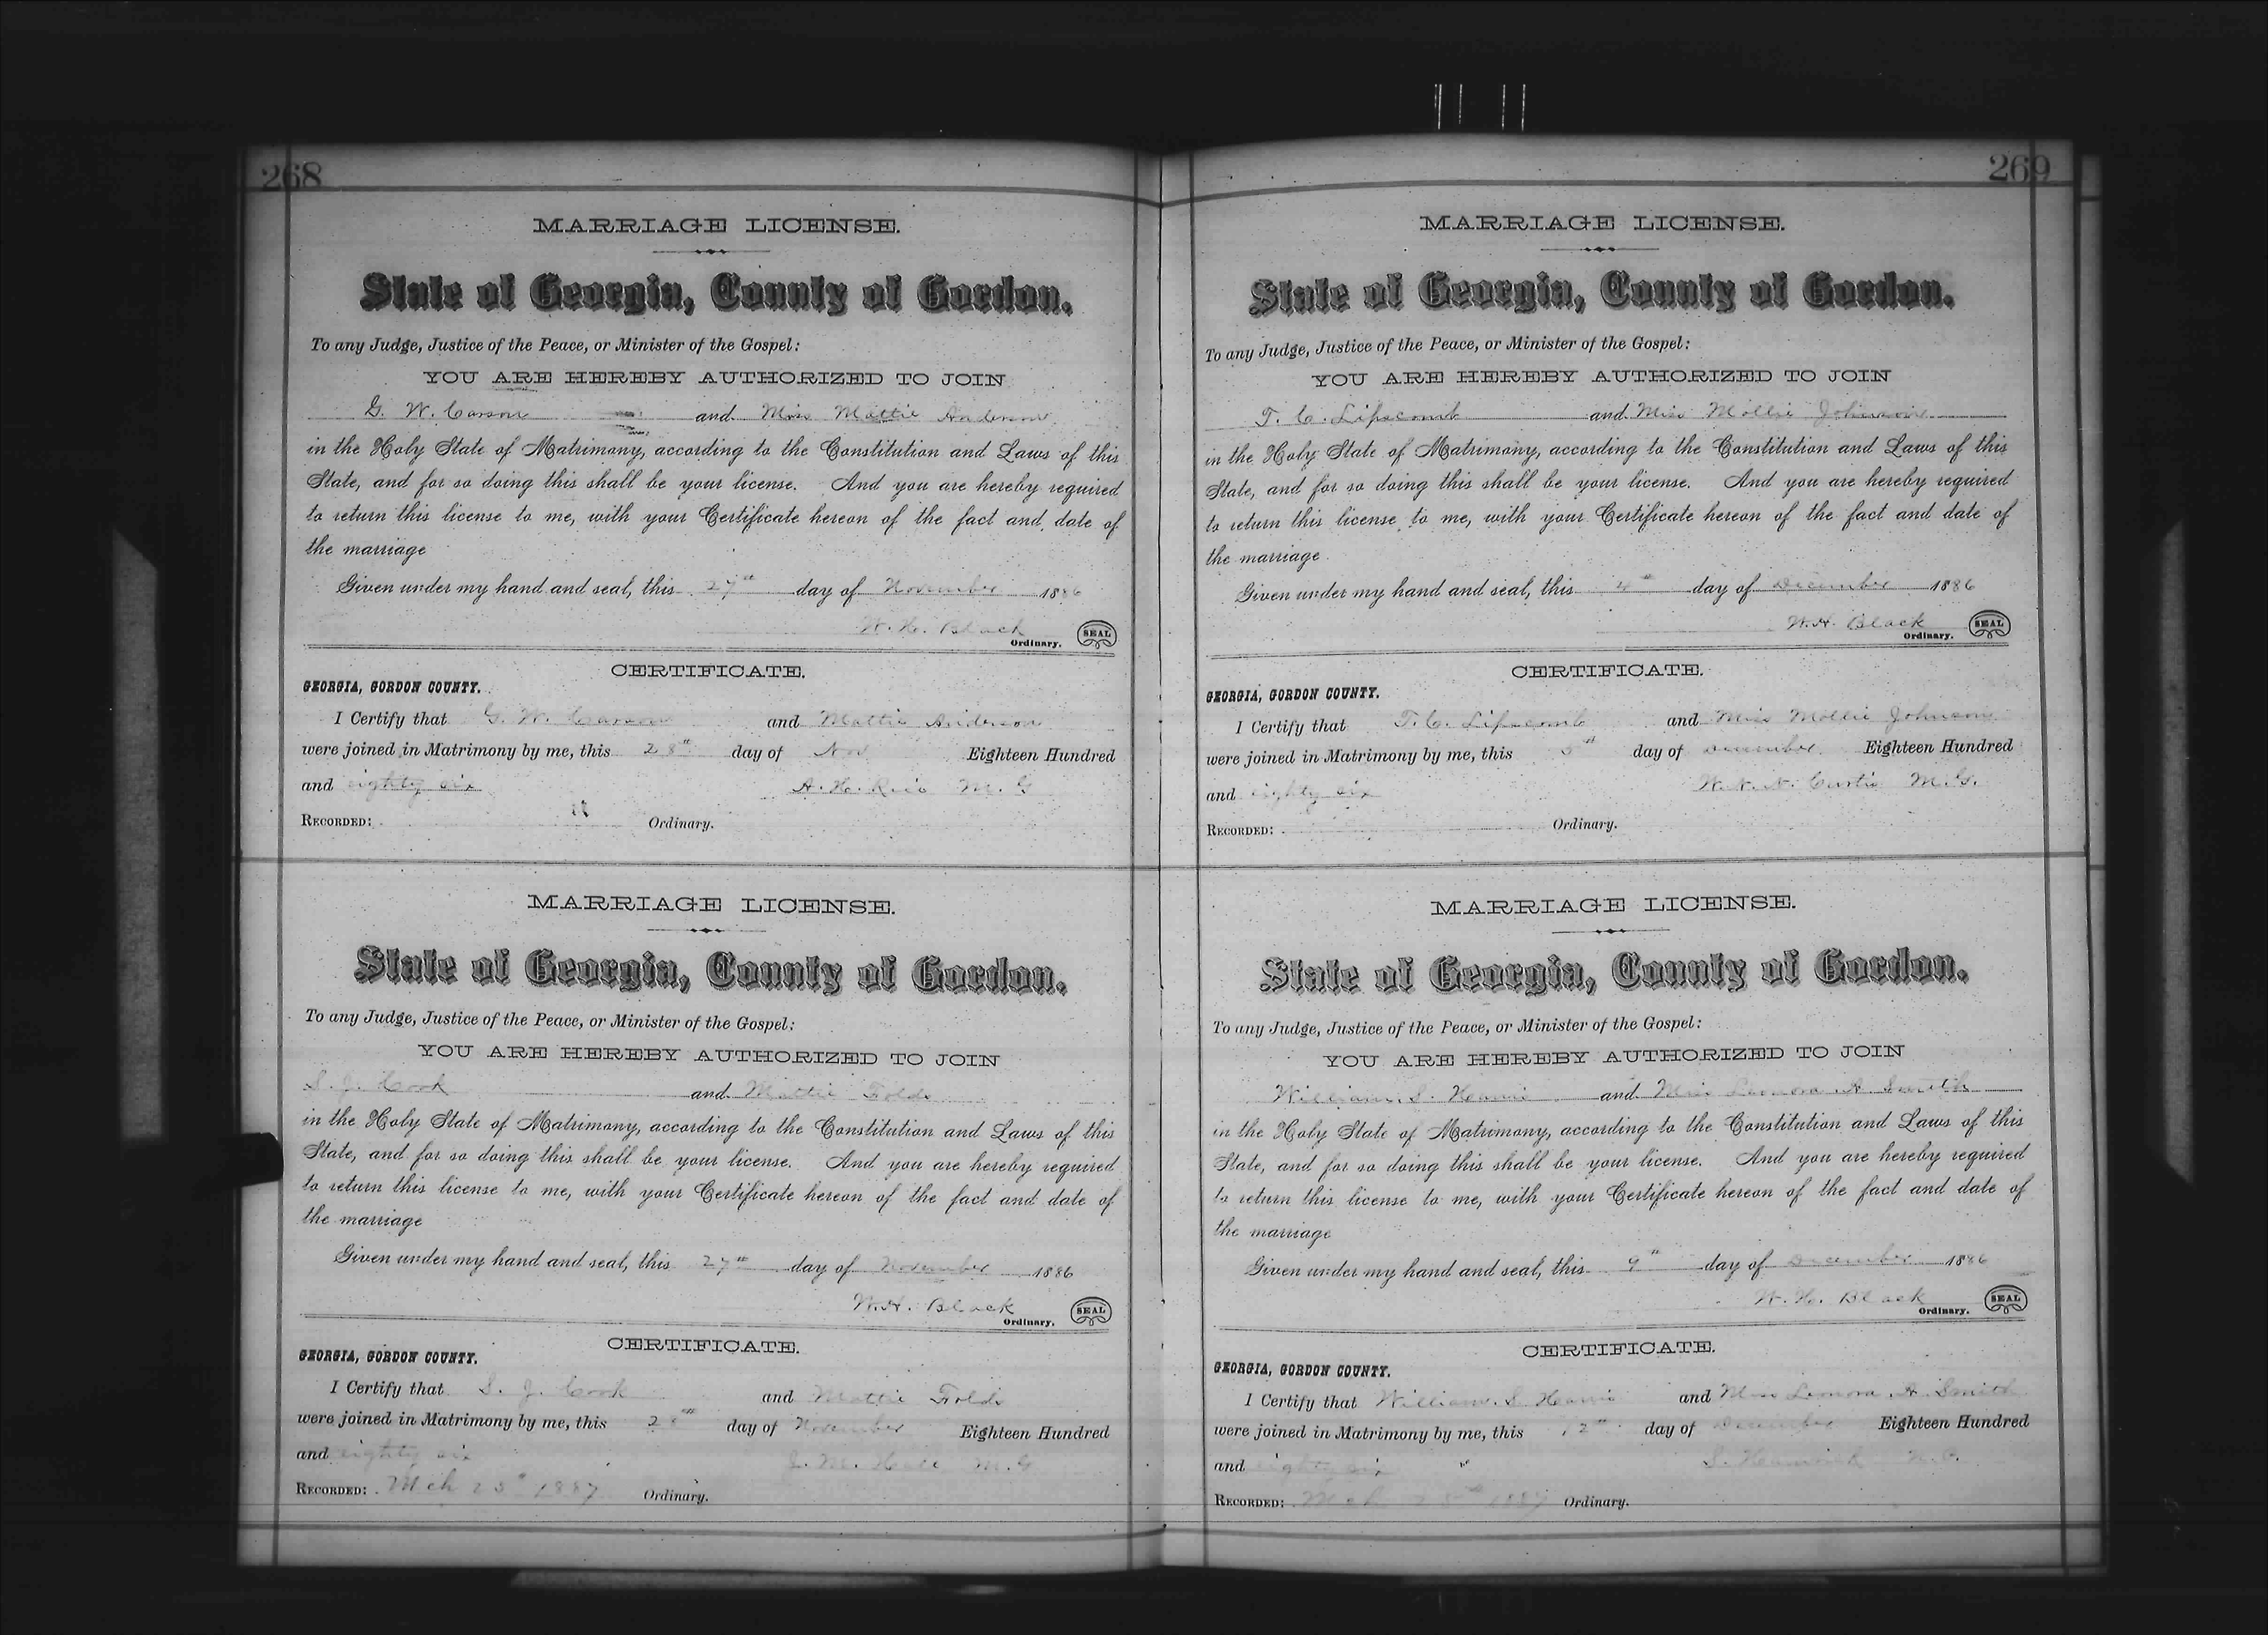 268
MARRIAGE LICENSE.
State of Georgia, County of Gordon.
To any Judge, Justice of the Peace, or Minister of the Gospel:
YOU ARE HEREBY AUTHORIZED TO JOIN
G. W. Carson and Miss Mattie Anderson
in the Holy State of Matrimony, according to the Constitution and Laws of this
State, and for so doing this shall be your license. And you are hereby required
to return this license to me, with your Certificate hereon of the fact and date of
the marriage
Given under my hand and seal, this 27th day of November 1886
W. H. Black
Ordinary. SEAL
CERTIFICATE.
GEORGIA, GORDON COUNTY.
I Certify that G. W. Carson and Mattie Anderson
were joined in Matrimony by me, this 28th day of Nov Eighteen Hundred
and eighty six A. H. Rice M. G
RECORDED: Ordinary.
MARRIAGE LICENSE.
State of Georgia, County of Gordon.
To any Judge, Justice of the Peace, or Minister of the Gospel:
YOU ARE HEREBY AUTHORIZED TO JOIN
S. J. Cook and Mattie Folds
in the Holy State of Matrimony, according to the Constitution and Laws of this
State, and for so doing this shall be your license. And you are hereby required
to return this license to me, with your Certificate hereon of the fact and date of
the marriage
Given under my hand and seal, this 27th day of November 1886
W. H. Black
Ordinary. SEAL
CERTIFICATE.
GEORGIA, GORDON COUNTY.
I Certify that S. J. Cook and Mattie Folds
were joined in Matrimony by me, this 28th day of November Eighteen Hundred
and eighty six J. M. Hall M. G
RECORDED: Mch 25th 1887 Ordinary.
269
MARRIAGE LICENSE.
State of Georgia, County of Gordon.
To any Judge, Justice of the Peace, or Minister of the Gospel:
YOU ARE HEREBY AUTHORIZED TO JOIN
T. C. Lipscomb and Miss Mollie Johnson
in the Holy State of Matrimony, according to the Constitution and Laws of this
State, and for so doing this shall be your license. And you are hereby required
to return this license to me, with your Certificate hereon of the fact and date of
the marriage
Given under my hand and seal, this 4th day of December 1886
W. H. Black
Ordinary. SEAL
CERTIFICATE.
GEORGIA, GORDON COUNTY.
I Certify that T. C. Lipscomb and Miss Mollie Johnson
were joined in Matrimony by me, this 5th day of December Eighteen Hundred
and eighty six Curtis M. G.
RECORDED: Ordinary.
MARRIAGE LICENSE.
State of Georgia, County of Gordon.
To any Judge, Justice of the Peace, or Minister of the Gospel:
YOU ARE HEREBY AUTHORIZED TO JOIN
William S. and Miss Leonora A Smith
in the Holy State of Matrimony, according to the Constitution and Laws of this
State, and for so doing this shall be your license. And you are hereby required
to return this license to me, with your Certificate hereon of the fact and date of
the marriage
Given under my hand and seal, this 9th day of December 1886
W. H. Black
Ordinary. SEAL
CERTIFICATE.
GEORGIA, GORDON COUNTY.
I Certify that William S. and Miss Leonora A. Smith
were joined in Matrimony by me, this 12th day of December Eighteen Hundred
and eighty six
RECORDED: Mch 1887 Ordinary.